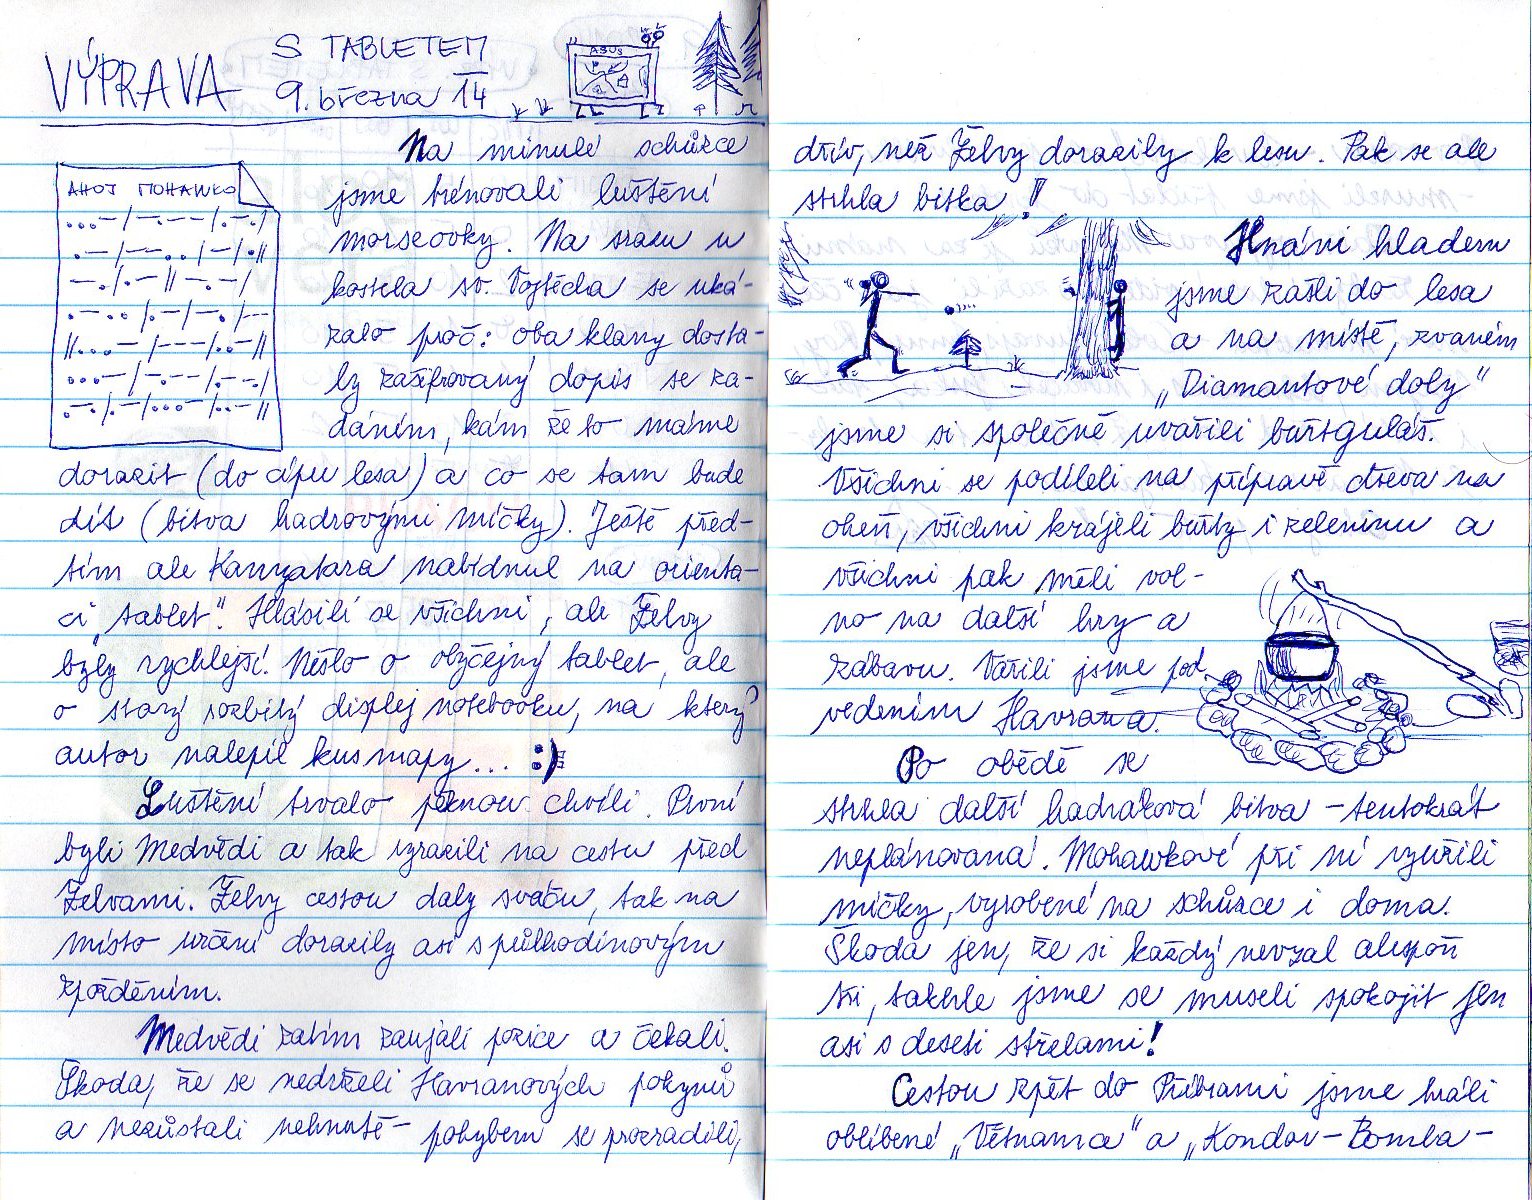 VÝPRAVA
S TABLETEM
9. března 14
ASUS
Na minulé schůzce
AHOJ MOHAWKO
jsme trénovali luštění
morseovky. Na srazu u
kostela sv. Vojtěcha se uká-
zalo proč: oba klany dosta-
ly zašifrovaný dopis se za-
dáním, kám že to máme
dorazit (do cípu lesa) a co se tam bude
dít (bitva hadrovými míčky). Ještě před-
tím ale Kamzatara nabídnul na orienta-
ci „tablet". Hlásili se všichni, ale Želvy
byly rychlejší. Nešlo o obyčejný tablet, ale
o starý rozbitý displej notebooku, na který
autor nalepil kus mapy... :)
Luštění trvalo pěknou chvíli. První
byli Medvědi a tak vyrazili na cestu před
Želvami. Želvy cestou daly sváču, tak na
místo určení dorazily asi s půlhodinovým
zpožděním.
Medvědi zatím zaujali pozice a čekali.
Škoda, že se nedrželi Havranových pokynů
a nezůstali nehnutě - pohybem se prozradili,
dřív, než Želvy dorazily k lesu. Pak se ale
strhla bitka!
Hnáni hladem
jsme zašli do lesa
a na místě, zvaném
„Diamantové doly"
jsme si společně uvařili buřtguláš.
Všichni se podíleli na přípravě dřeva na
oheň, všichni krájeli buřty i zeleninu a
všichni pak měli vol-
no na další hry a
zábavu. Vařili jsme pod
vedením Havrana.
Po obědě se
strhla další hadráková bitva - tentokrát
neplánovaná. Mohawkové při ní využili
míčky, vyrobené na schůzce i doma.
Škoda jen, že si každý nevzal alespoň
tři, takhle jsme se museli spokojit jen
asi s deseti střelami!
Cestou zpět do Příbrami jsme hráli
oblíbené „Vétnama" a „Kondor-Bomba-